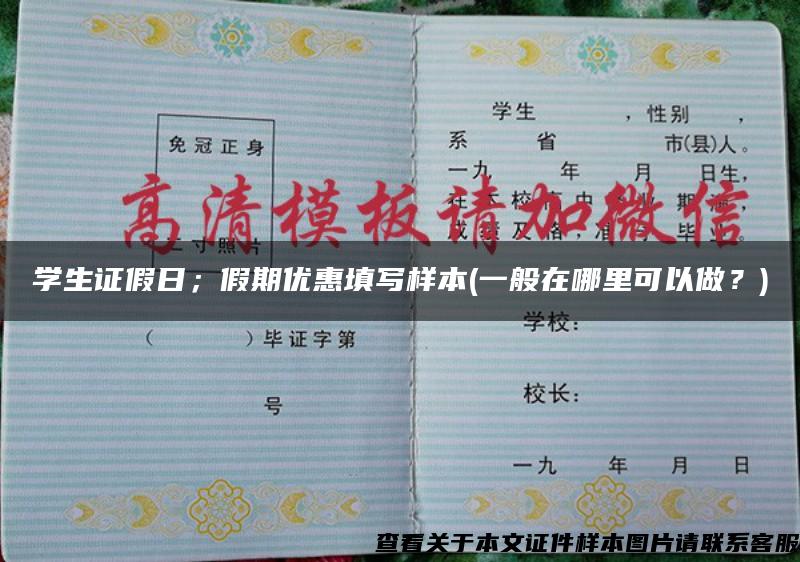 学生 ，性别 ，
免冠正身
系 省 市(县)人。
一九 年 月 日生，
高清模板请加微信
二寸照片
学生证假日；假期优惠填写样本(一般在哪里可以做？)
学校：
( )毕证字第
号
校长：
一九 年 月 日
查看关于本文证件样本图片请联系客服